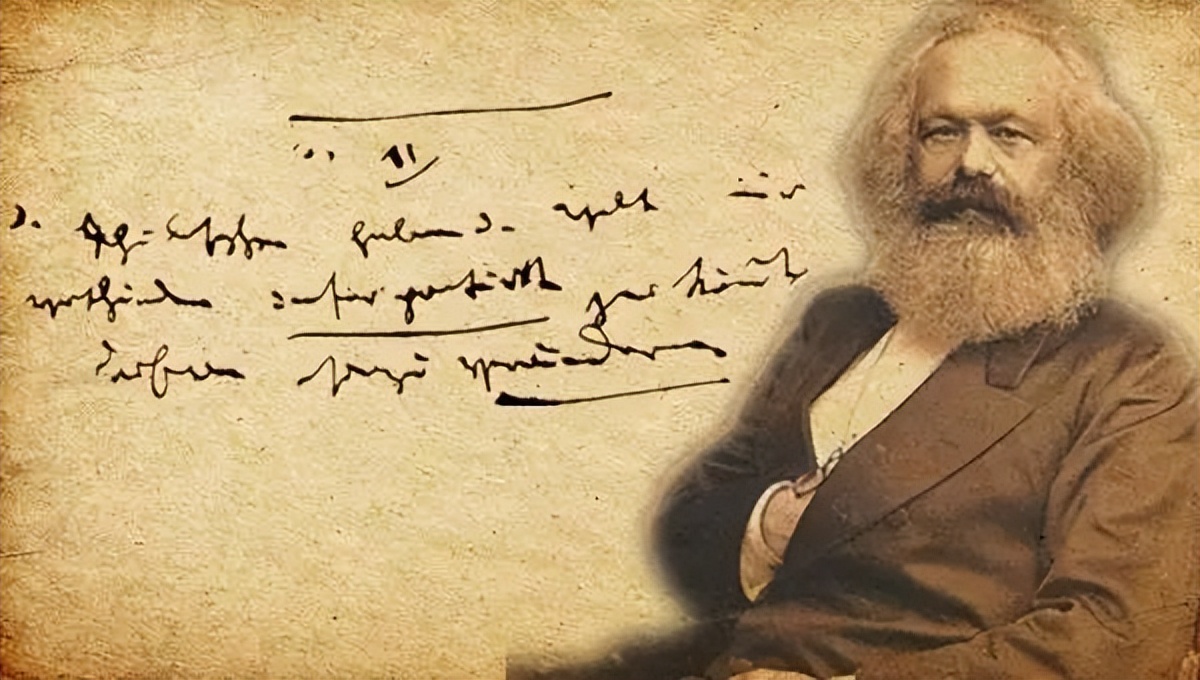 11
D. Philosophen haben d. Welt nur
verschieden interpretirt kömmt
zu verändern